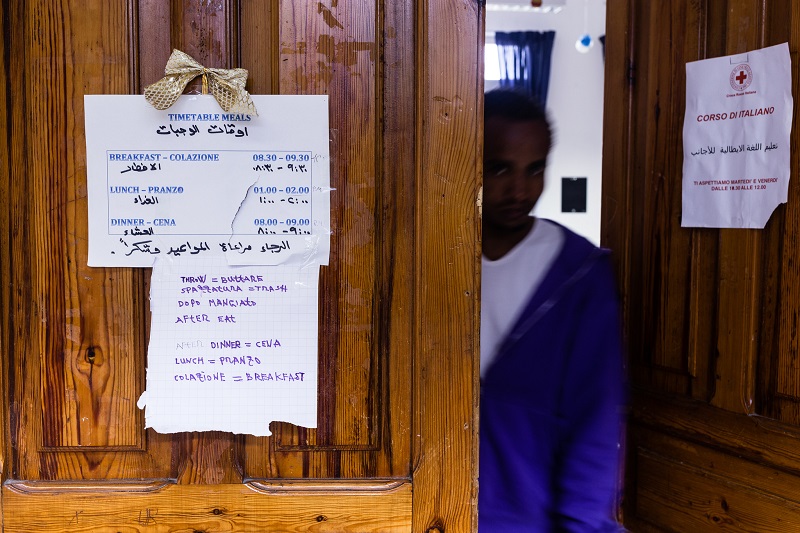 TIMETABLE MEALS
اوقات الوجبات
BREAKFAST – COLAZIONE 08.30 – 09.30
الافطار ٨:٣٠ - ٩:٣٠
LUNCH – PRANZO 01.00 – 02.00
الغداء ١:٠٠ - ٢:٠٠
DINNER – CENA 08.00 – 09.00
العشاء ٨:٠٠ - ٩:٠٠
الرجاء مراعاة المواعيد وشكراً.
THROW = BUTTARE
SPAZZATURA = TRASH
DOPO MANGIATO
AFTER EAT
AFTER DINNER = CENA
LUNCH = PRANZO
COLAZIONE = BREAKFAST
Croce Rossa Italiana
CORSO DI ITALIANO
تعليم اللغة الايطالية للأجانب
TI ASPETTIAMO MARTEDI' E VENERDI
DALLE 10.30 ALLE 12.00